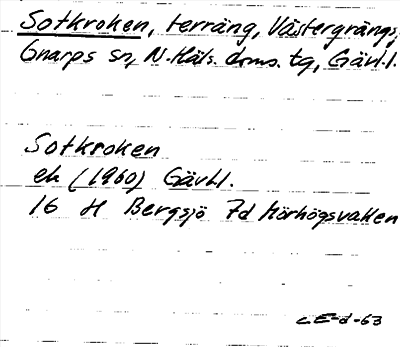 Sotkroken, terräng, Västergrängs,
Gnarps sn, N. Häls. doms. tg, Gävl.l.
Sotkroken
ek (1960) Gävl.l.
16 H Bergsjö 7d Mörhögsvallen
CE-d-63